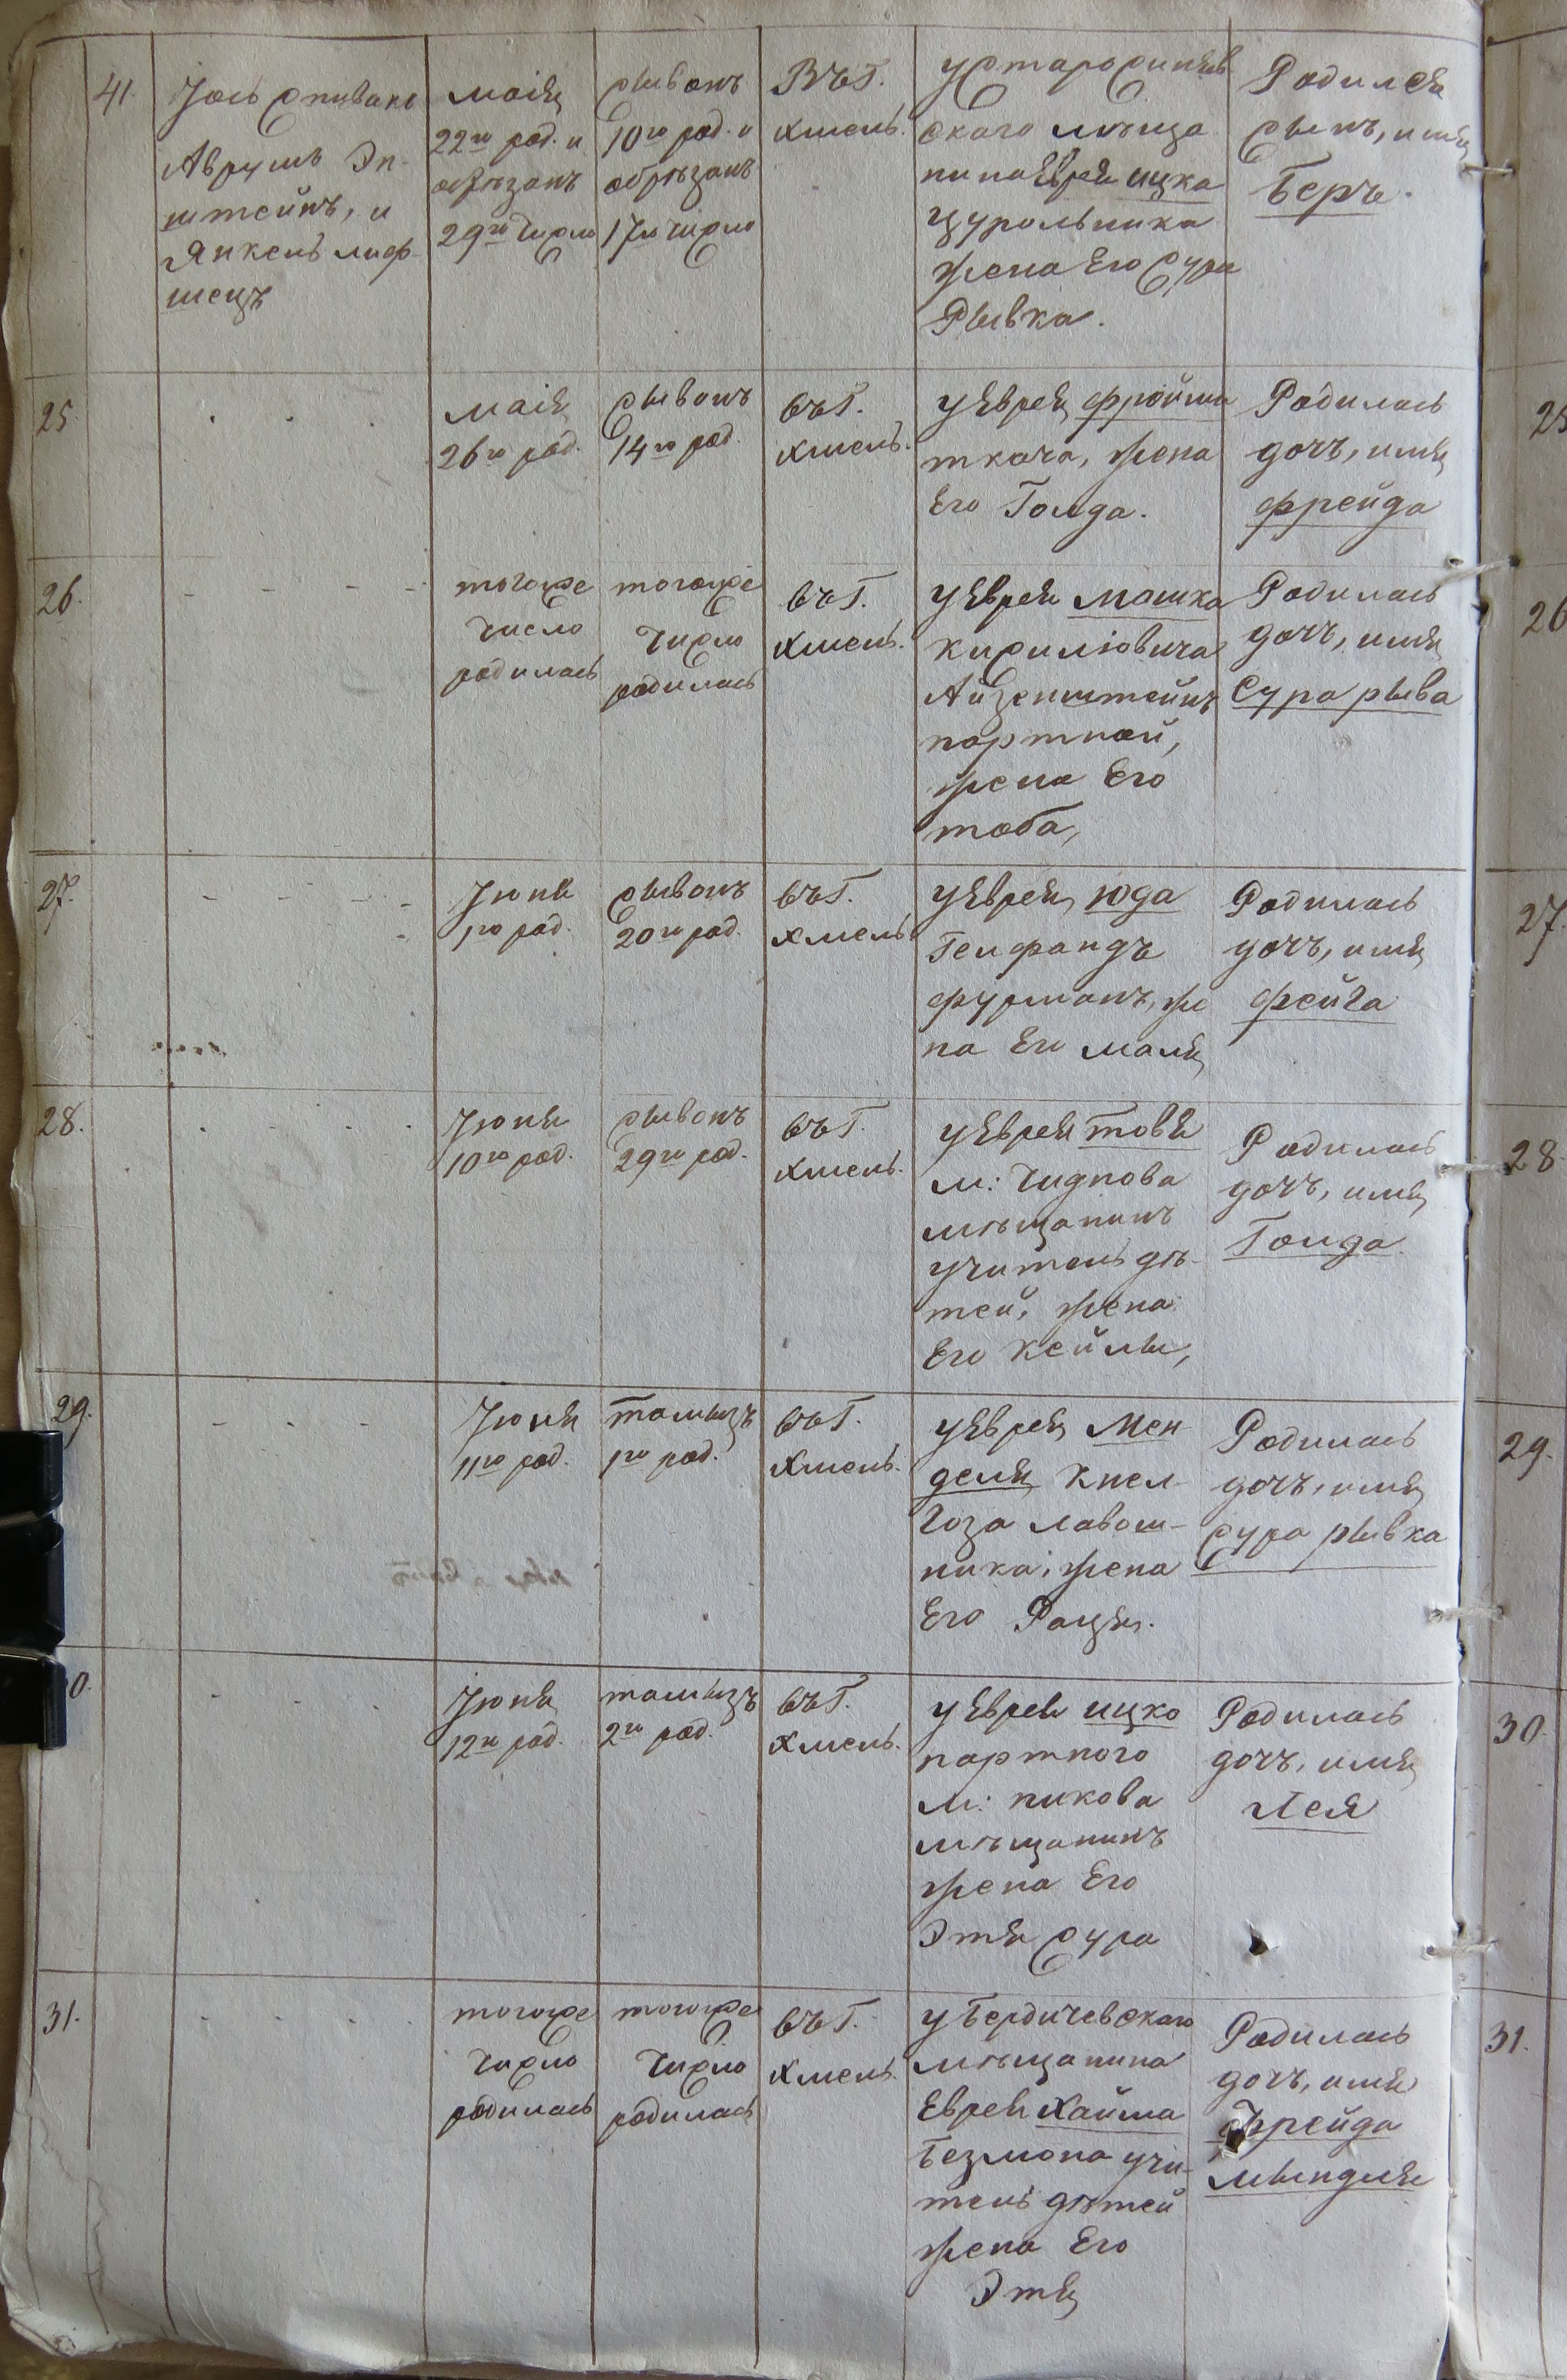 41. Іось спивакъ
Аврумъ Эп-
штейнъ, и
Янкель лиф-
шецъ
маія
22го род. и
обрѣзанъ
29го число
сыванъ
10го род. и
обрѣзанъ
17го число
Въ Г.
хмель.
у старосиняв
скаго мѣща
нина Еврея ицка
цурольника
жена Его Сура
Рывка.
Родился
сынъ, имя
Беръ.
25.
маія
26го род.
сыванъ
14го род.
въ Г.
хмель.
у Еврея фройма
ткача, жена
Его Голда.
Родилась
дочь, имя
фрейда
26.
тогоже
число
родилась
тогоже
число
родилась
въ Г.
хмель.
у Еврея мошка
Айзенштейнъ
портной,
жена Его
тоба,
Родилась
дочь, имя
Сура рыва
27.
Іюня
1го род.
сыванъ
20го род.
въ Г.
хмель
у Еврея юда
Гелфандъ
фурманъ, же
на Его маля
Родилась
дочь, имя
фейга
28.
Іюня
10го род.
сыванъ
29го род.
въ Г.
хмель.
у Еврея товя
м: чуднова
мѣщанинъ
учитель дѣ-
тей, жена
Его кейлы,
Родилась
дочь, имя
Голда.
29.
Іюня
11го род.
тамызъ
1го род.
въ Г.
хмель.
у Еврея Мен
деля
лавош-
ника, жена
Его Рація.
Родилась
дочь, имя
сура рывка
0.
Іюня
12го род.
тамызъ
2го род.
въ Г.
хмель.
у Еврея ицко
портного
м: пикова
мѣщанинъ
жена Его
Этя сура
Родилась
дочь, имя
Лея
31.
тогоже
число
родилась
тогоже
число
родилась
въ Г.
хмель.
у Бердичевскаго
мѣщанина
Еврея Хайма
Безмона учи-
тель дѣтей
жена Его
Этя
Родилась
дочь, имя
Фрейда
мындля
25
26
27.
28
29.
30.
31.